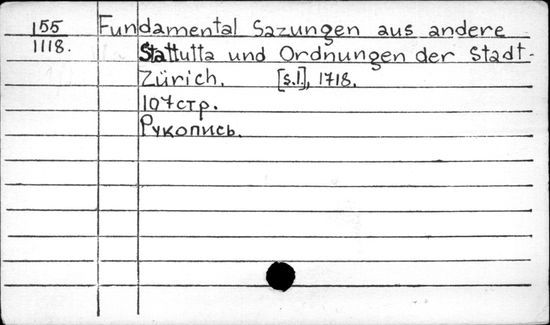 155 Fundamental Sazungen aus andere
1118. Stattutta und Ordnungen der Stadt-
Zürich. [s.l.], 1718.
107 стр.
Рукопись.